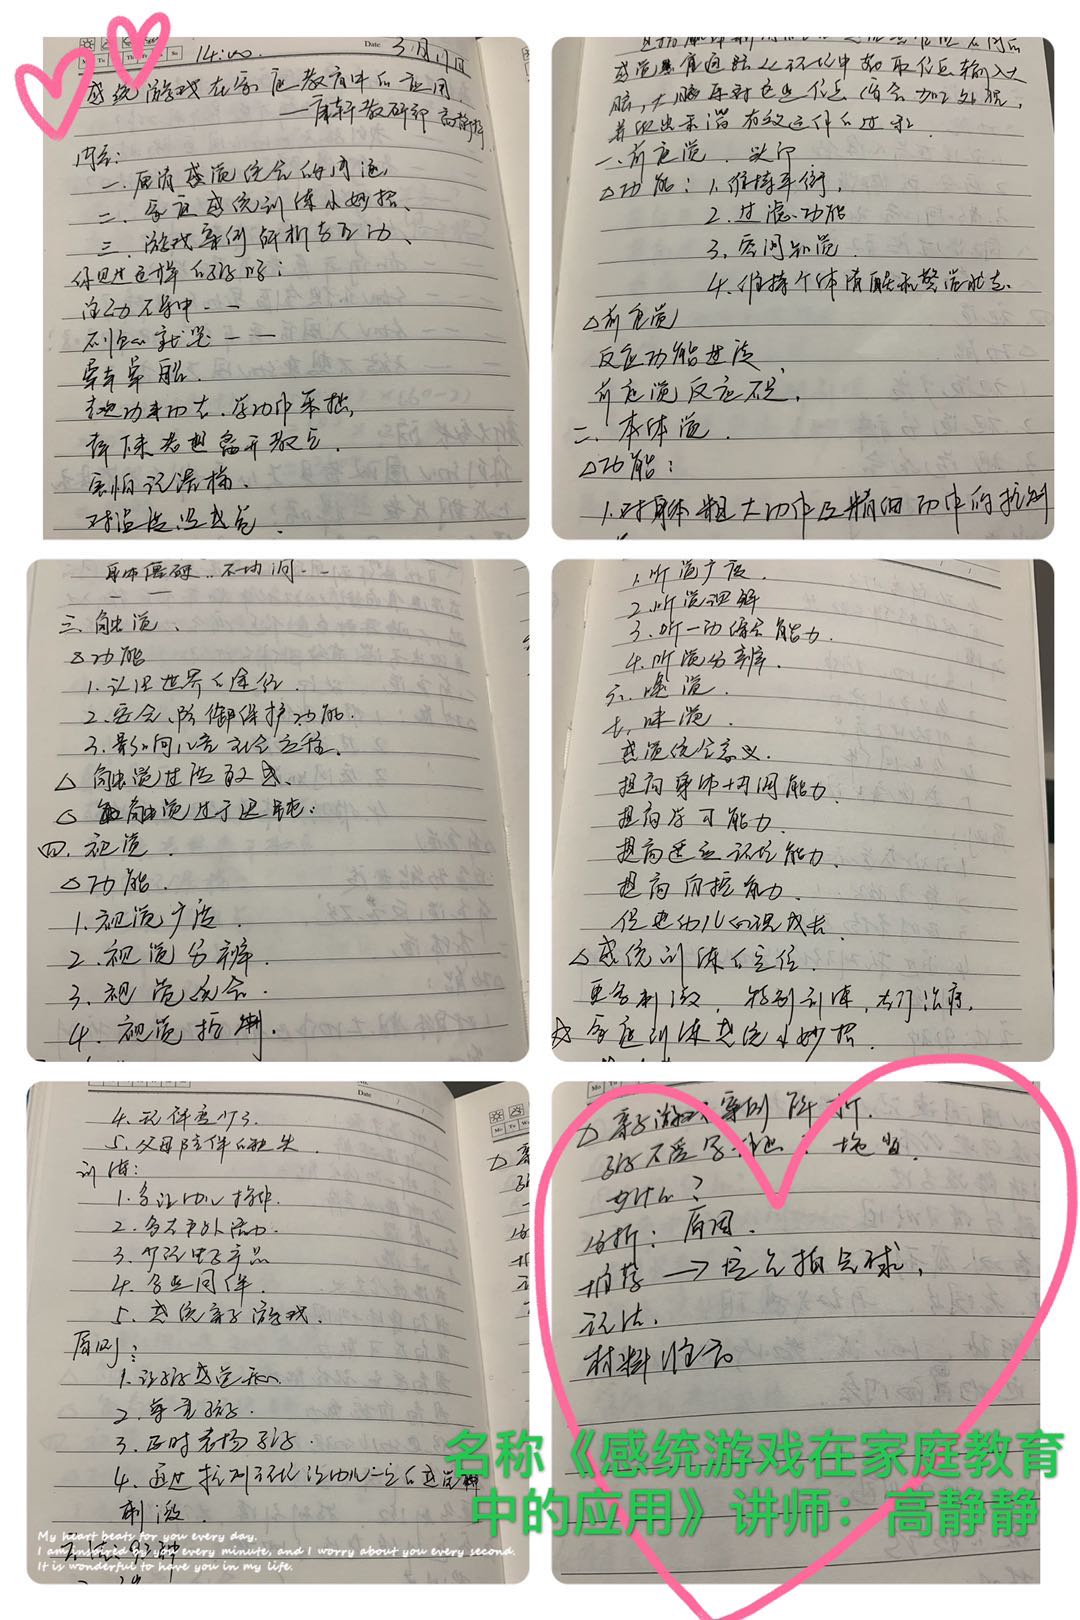 14:00 Date 3月11日
感统游戏在家庭教育中的应用
——教研部 高静静
内容:
一.厘清感觉统合的
二.家庭感统训练小妙招、
三.游戏案例解析与互动、
你见过这样的孩子吗:
注意力不集中.——
不小心就哭——
晕车晕船.
走起路来,学动作笨拙,
害怕
对
感觉器官通路从环境中获取信息输入大
脑,大脑再对这些信息综合加工处理,
并做出
一.前庭觉.
△功能:1.维持平衡,
2.过滤功能
3.空间知觉
4.维持个体清醒和警觉状态
△前庭觉
反应功能过度
前庭觉反应不足,
二.本体觉.
△功能:
1.对身体粗大动作及精细动作的控制
身体僵硬..不协调.--
三.触觉、
△功能
1.认识世界的途径.
2.安全、防御保护功能.
3.影响儿童社会
△触觉过度敏感、
△触觉过于迟钝:
四.视觉.
△功能.
1.视觉广度.
2.视觉分辨.
3.视觉统合.
4.视觉控制.
1.听觉广度.
2.听觉理解
3.听一动综合能力.
4.听觉分辨.
六.嗅觉.
七.味觉.
感觉统合意义.
提高身体协调能力.
提高学习能力.
提高适应环境能力.
提高自控能力
促进幼儿心理成长.
△感统训练的定位.
更多刺激,特别训练,专门治疗.
☆家庭训练感统小妙招.
Date
4.玩伴变少了.
5.父母陪伴的缺失.
训练:
1.多让幼儿
2.多去户外活动.
3.少玩电子产品
4.多些同伴.
5.感统亲子游戏.
原则:
1.让孩子感觉
2.尊重孩子.
3.及时表扬孩子.
4.通过控制环境给幼儿一定的感觉
刺激.
My heart beats for you every day.
I am inspired by you every minute, and I worry about you every second.
It is wonderful to have you in my life.
☆亲子游戏案例解析.
孩子不爱
为什么?
分析:原因.
推荐→拍气球,
玩法.
材料准备
名称《感统游戏在家庭教育
中的应用》讲师：高静静